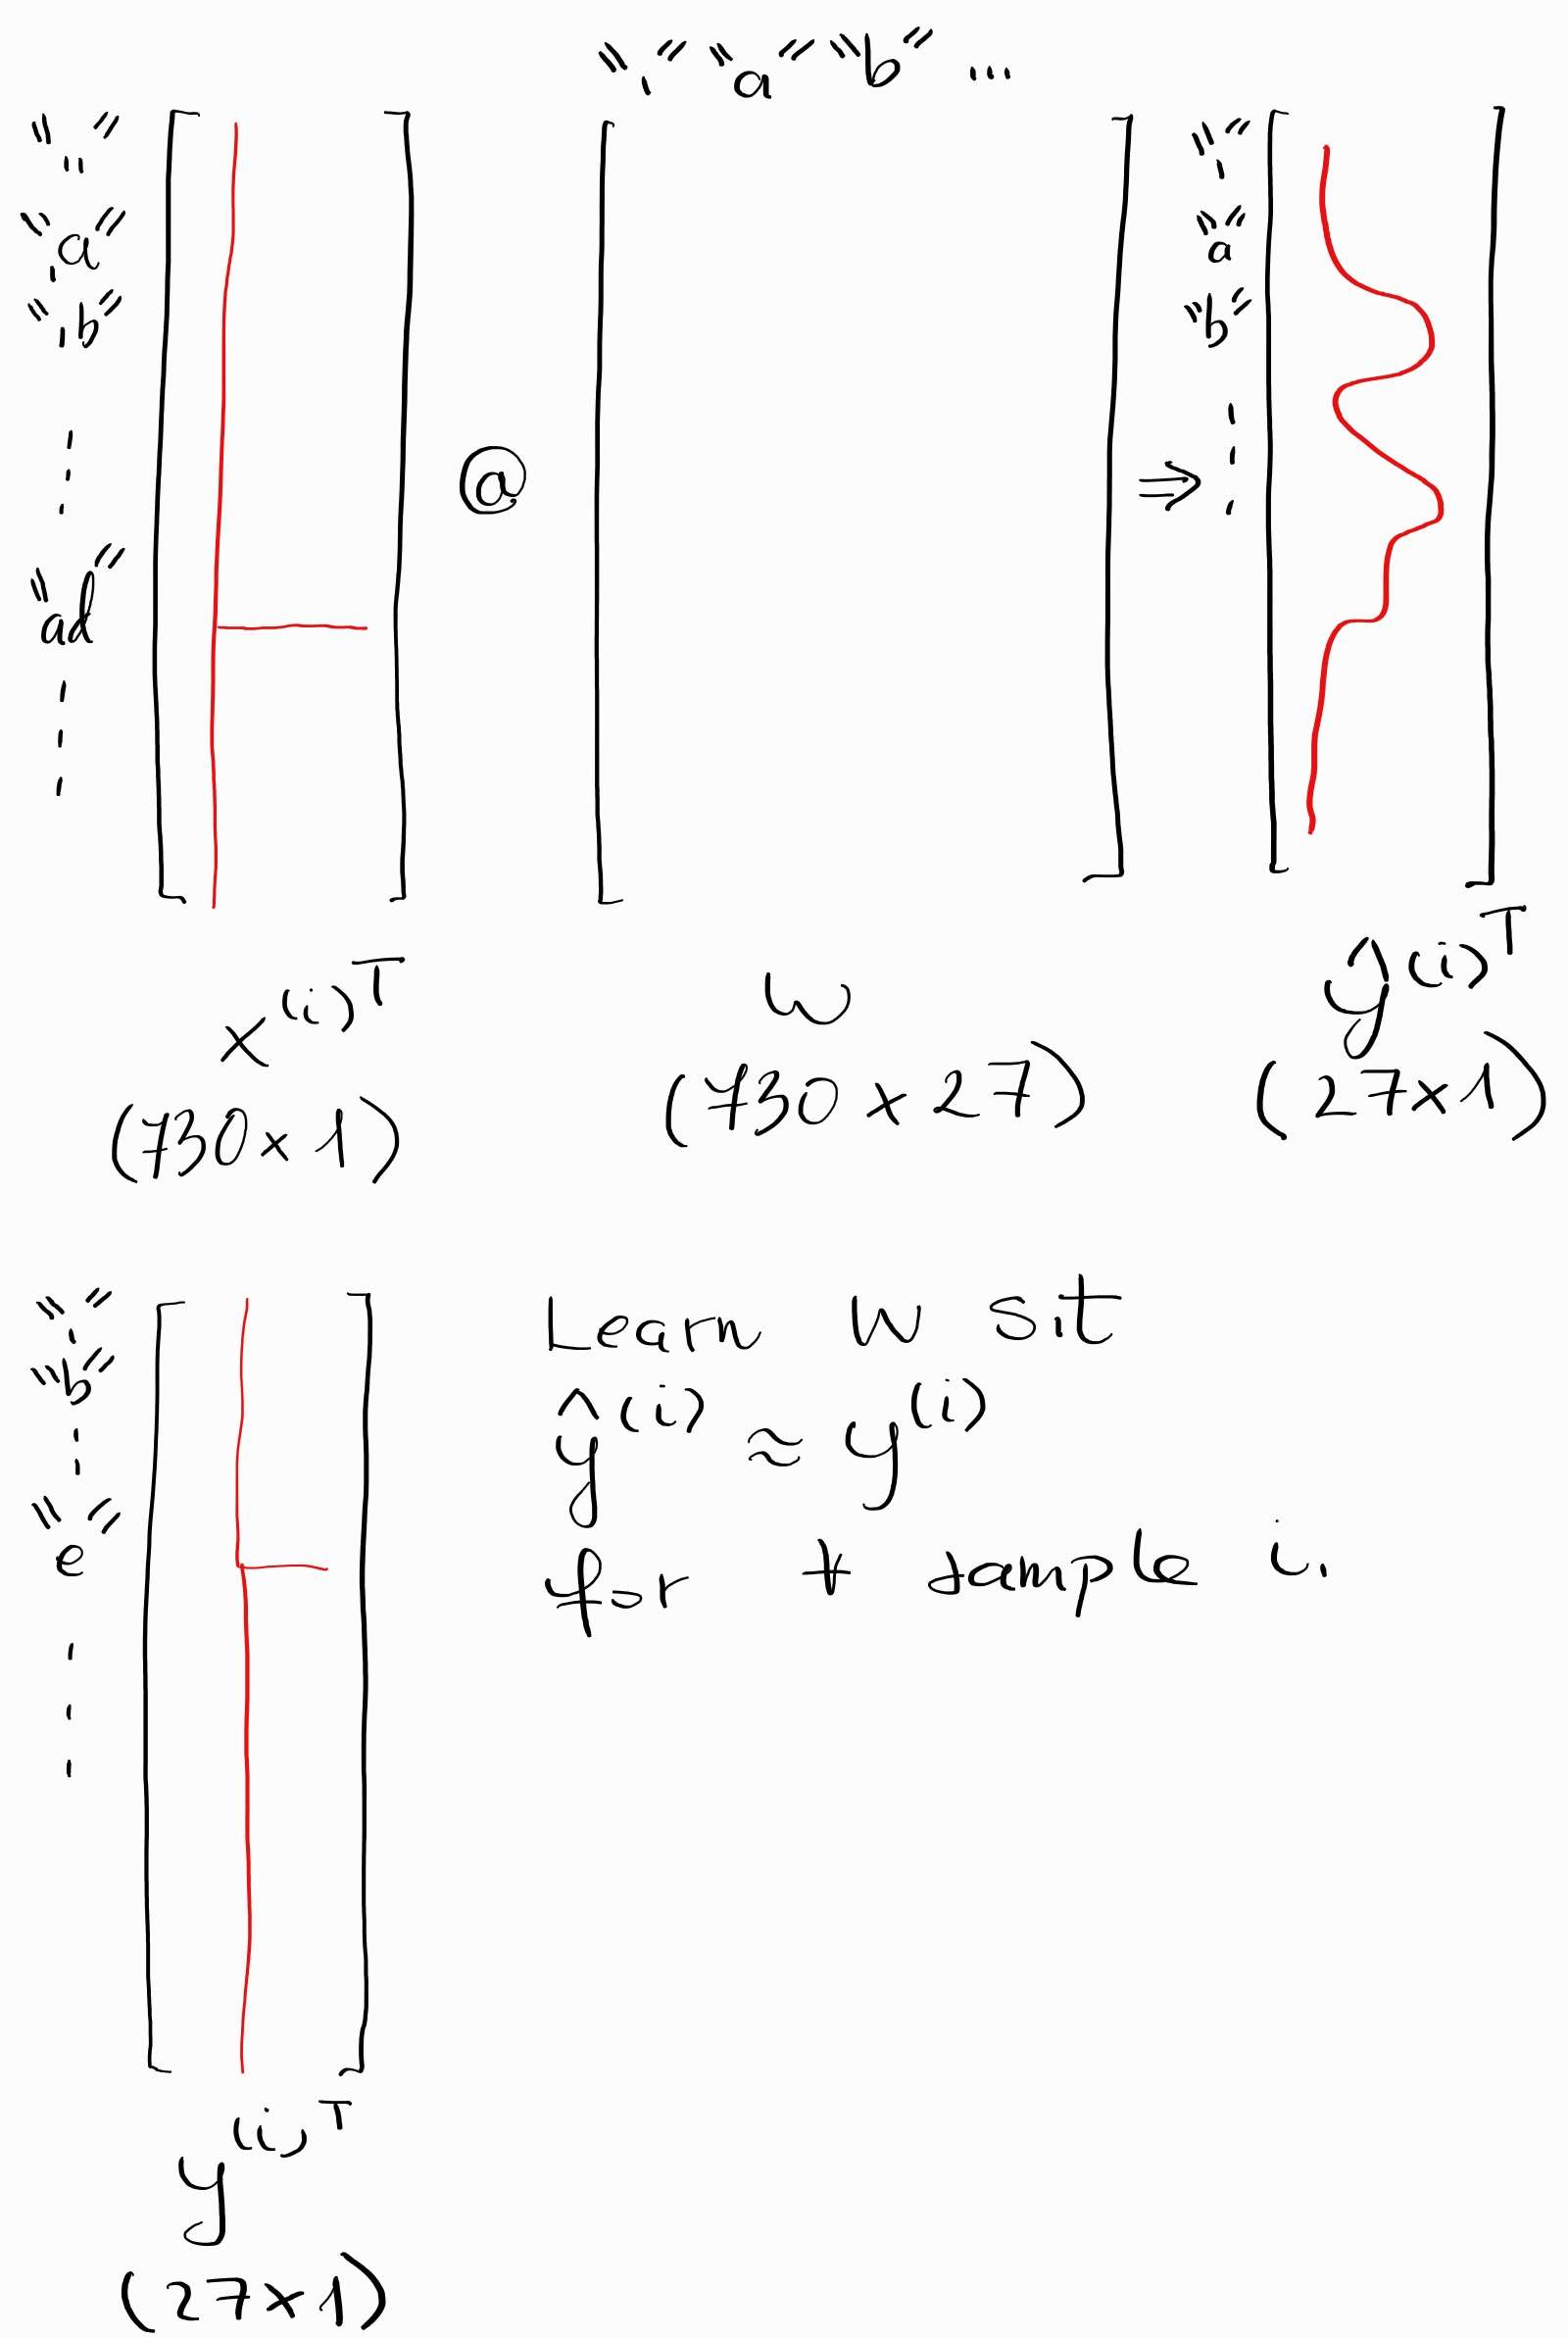 "." "a" "b" ...
".."
".a"
".b"
"ad"
@
⇒
"."
"a"
"b"
x^(i)T
(730x1)
W
(730x27)
ŷ^(i)T
(27x1)
"."
"b"
"e"
y^(i)T
(27x1)
Learn W s.t
ŷ^(i) ≈ y^(i)
for ∀ sample i.